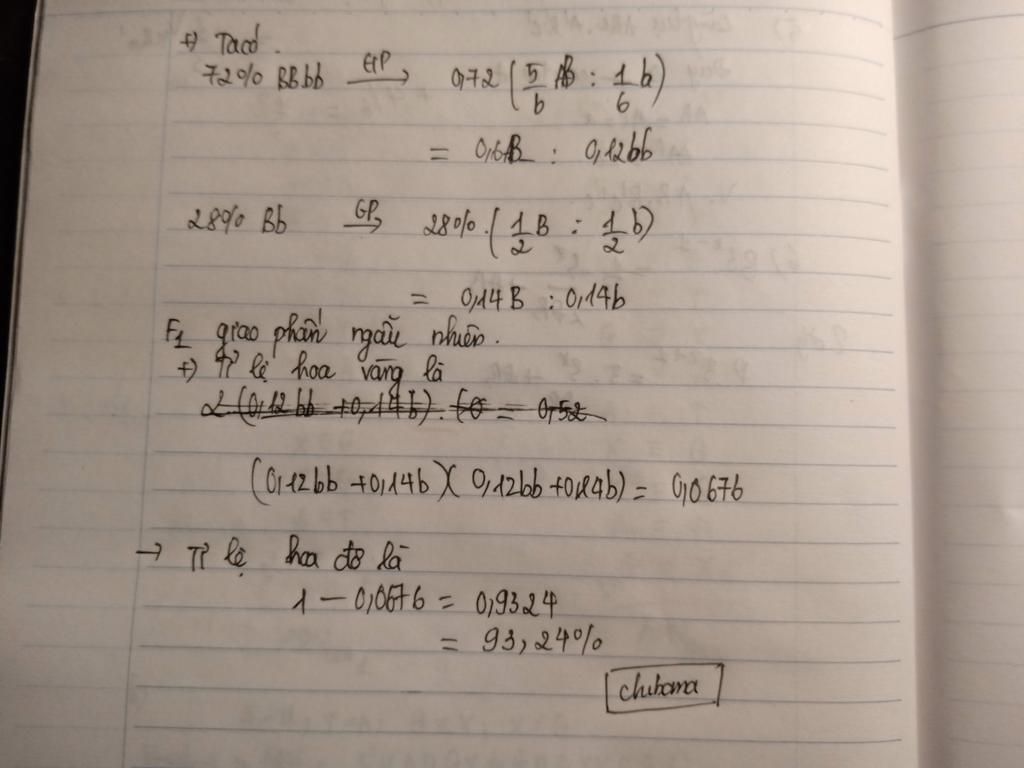 +) Ta có.
72% BBbb GP→ 0,72 (5/6 B : 1/6 b)
= 0,6B : 0,12bb
28% Bb GP→ 28%.(1/2 B : 1/2 b)
= 0,14B : 0,14b
F1 giao phấn ngẫu nhiên.
+) Tỉ lệ hoa vàng là
2(0,12bb + 0,14b). = 0,52
(0,12bb + 0,14b)(0,12bb + 0,14b) = 0,0676
→ Tỉ lệ hoa đỏ là
1 − 0,0676 = 0,9324
= 93,24%